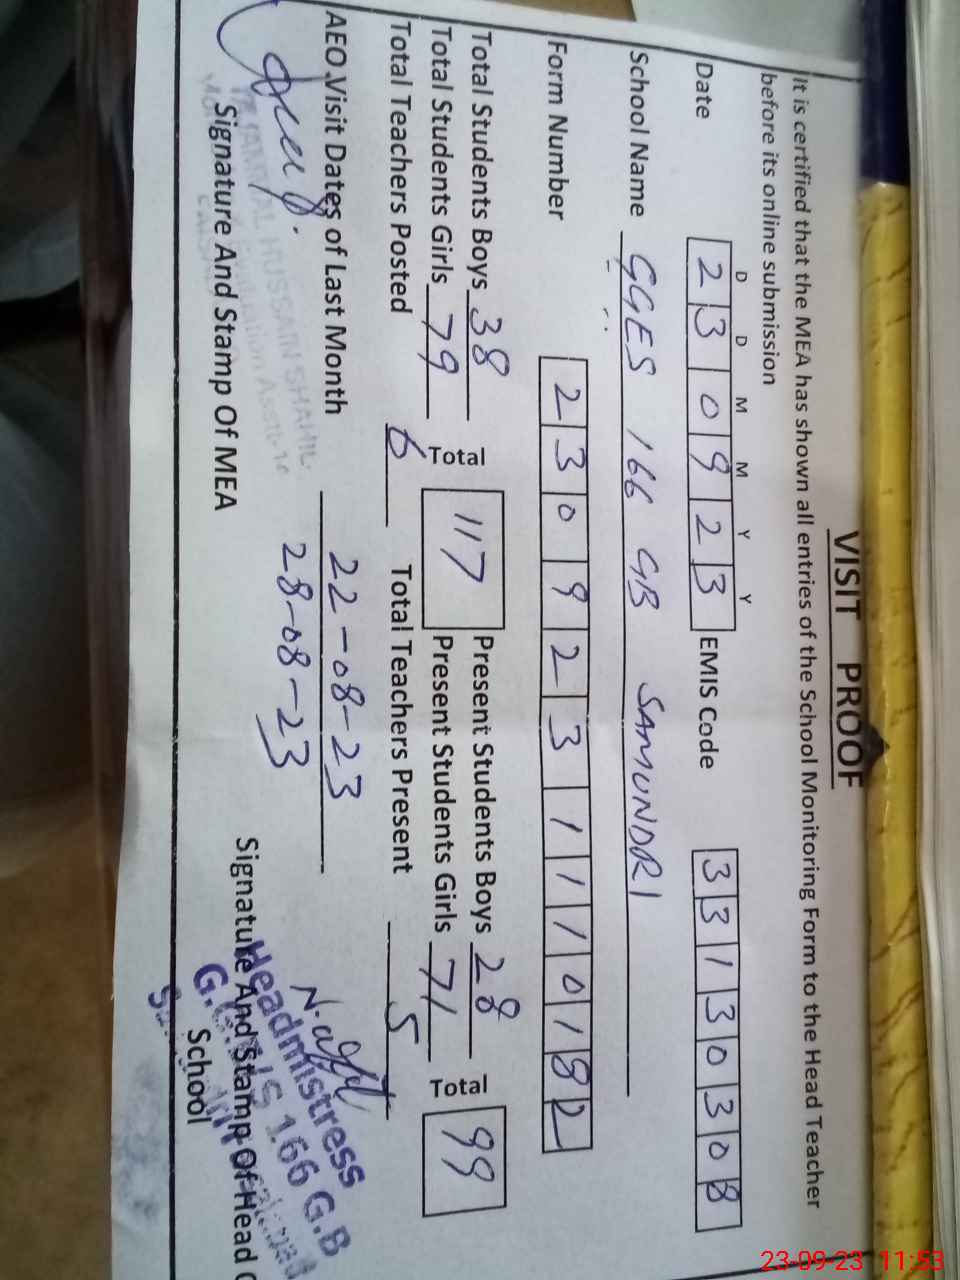 VISIT PROOF
It is certified that the MEA has shown all entries of the School Monitoring Form to the Head Teacher
before its online submission
D D M M Y Y
Date 2 3 0 9 2 3 EMIS Code 3 3 1 3 0 3 0 8
School Name GGES 166 GB SAMUNDRI
Form Number 2 3 0 9 2 3 1 1 1 0 1 8 2
Total Students Boys 38 Present Students Boys 28
Total Students Girls 79 Total 117 Present Students Girls 71 Total 99
Total Teachers Posted 6 Total Teachers Present 5
AEO Visit Dates of Last Month 22-08-23
28-08-23
HUSSAIN
Signature And Stamp Of MEA
Signature And Stamp Of Head
School
Headmistress
166 G.B
23-09-23 11:53